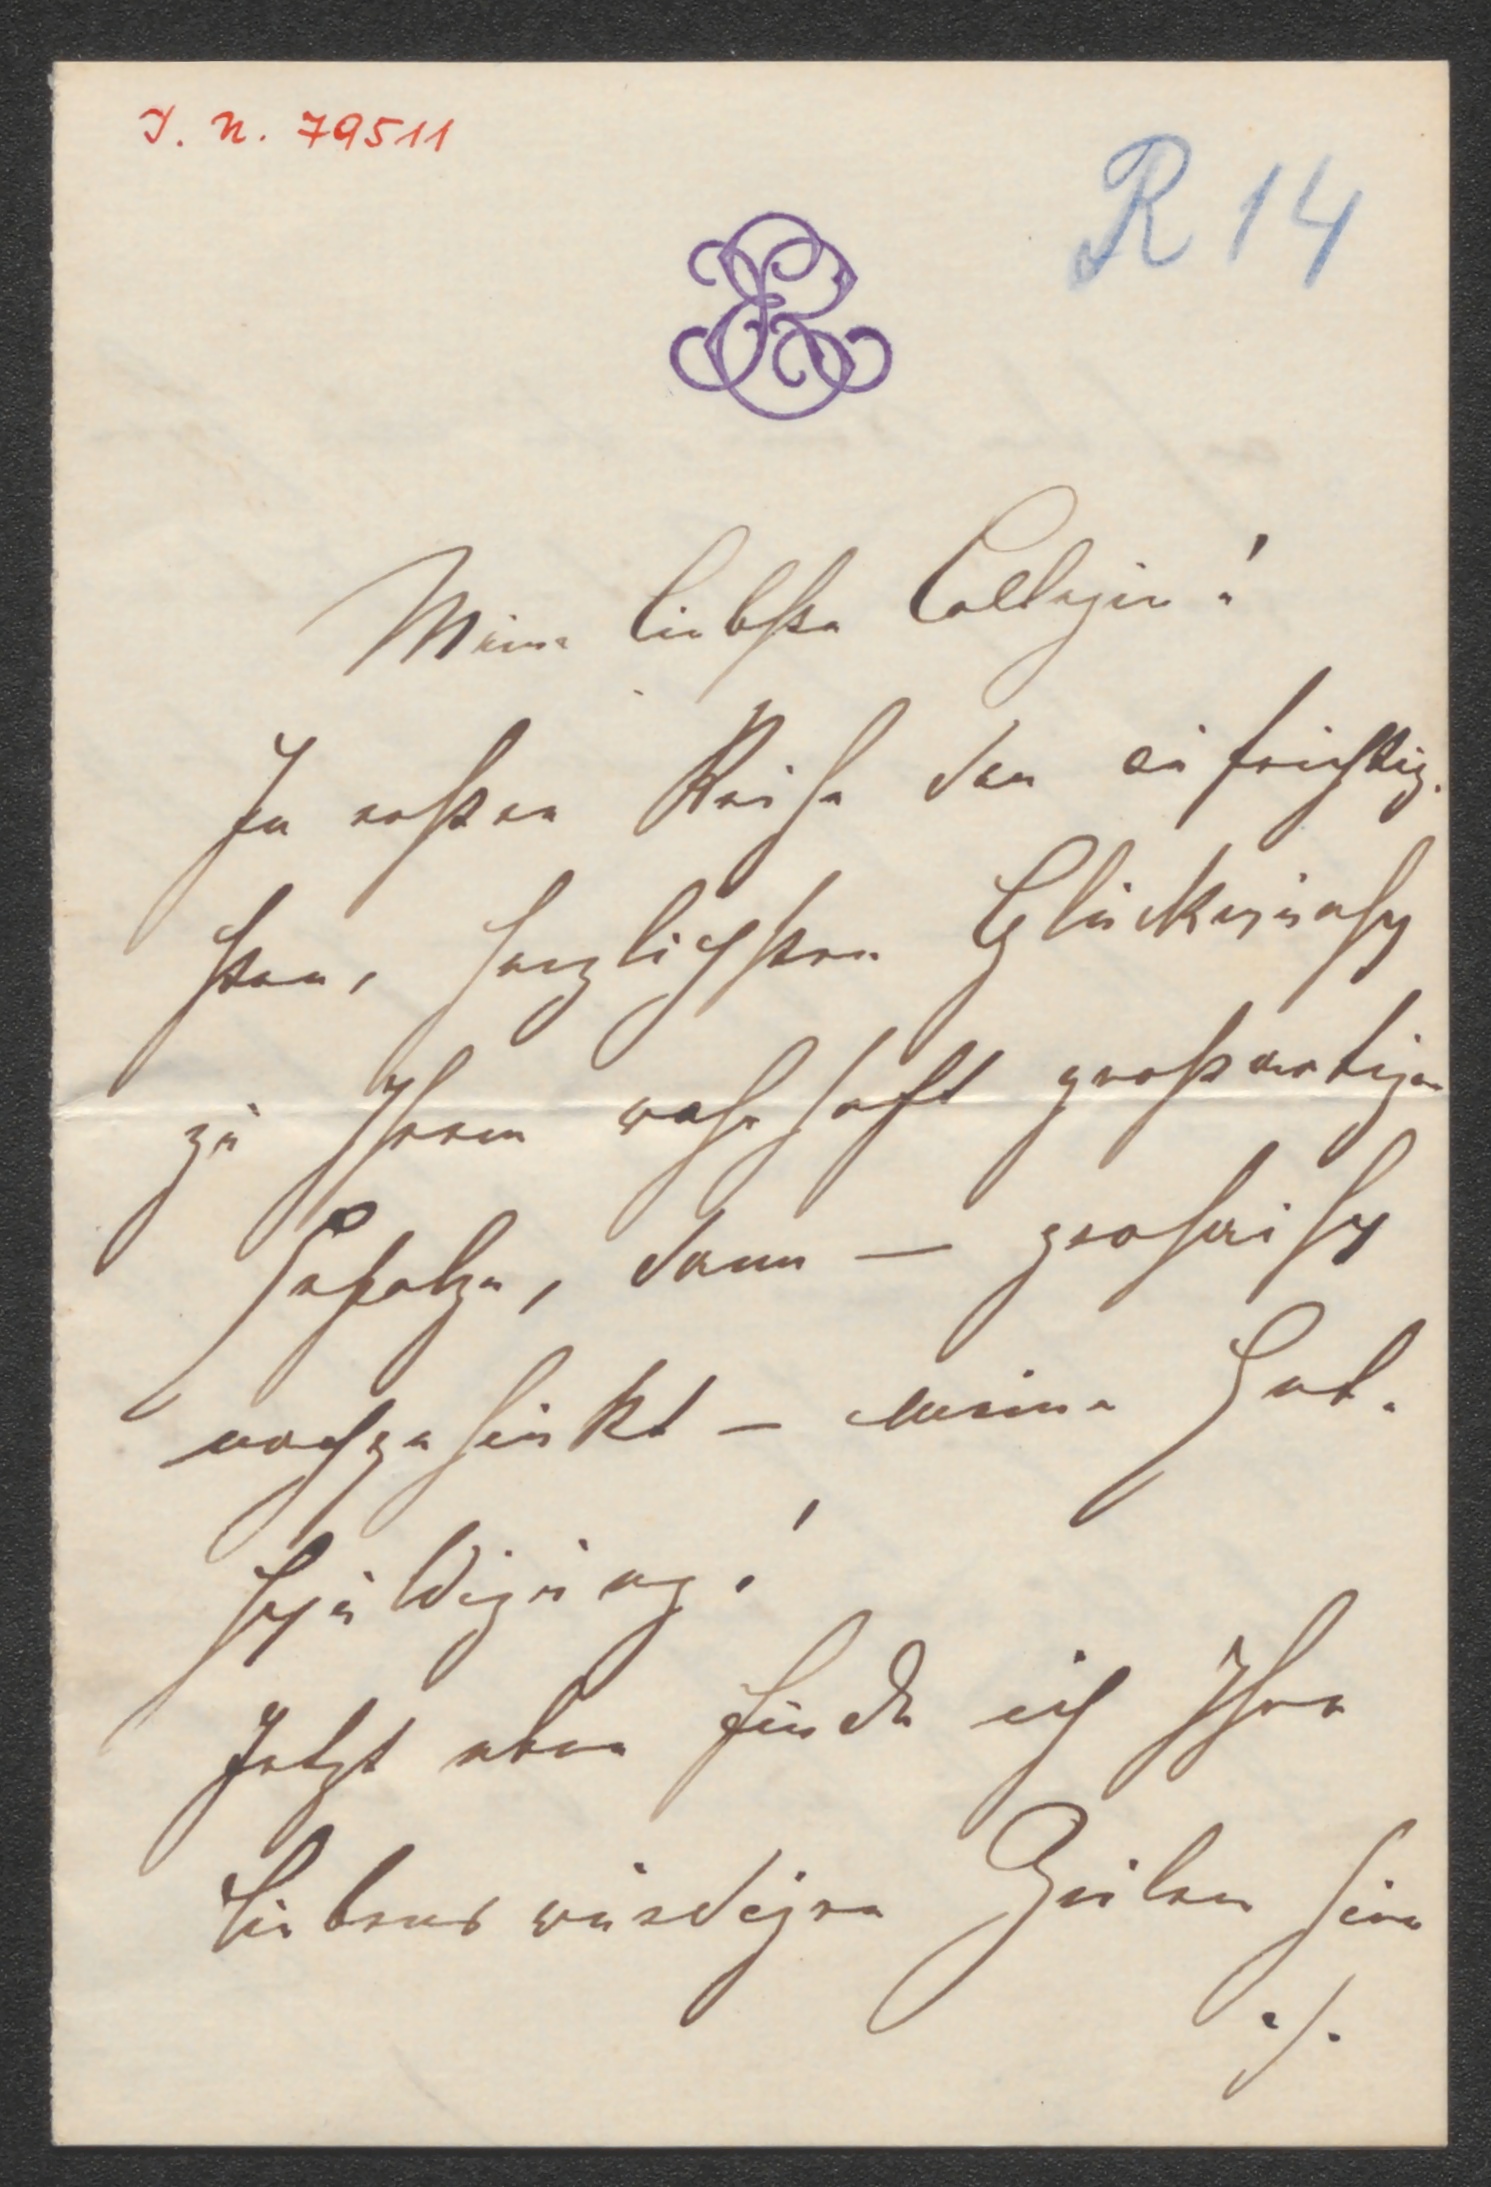 I. N. 79511
R 14
Meine liebste Collegin!
In erster Reihe den aufrichtig-
sten, herzlichsten Glückwunsch
zu Ihrem wahrhaft großartigen
Erfolge, dann —
nachgehinkt — meine Ent-
schuldigung!
Jetzt eben finde ich Ihre
liebenswürdigen Zeilen hier
./.